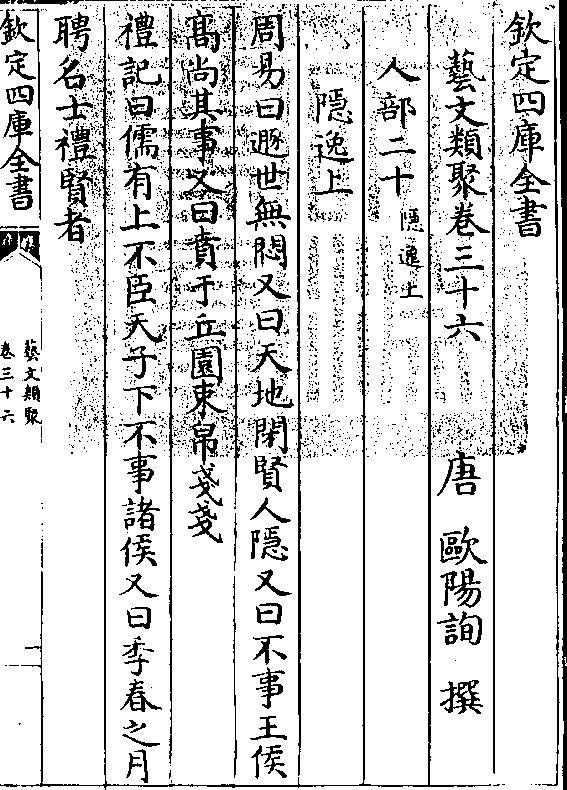 欽定四庫全書
藝文類聚卷三十六　唐　歐陽詢　撰
人部二十隱逸上
隱逸上
周易曰遯世無悶又曰天地閉賢人隱又曰不事王侯
高尚其事又曰賁于丘園束帛戔戔
禮記曰儒有上不臣天子下不事諸侯又曰季春之月
聘名士禮賢者
欽定四庫全書
藝文類聚
卷三十六
一